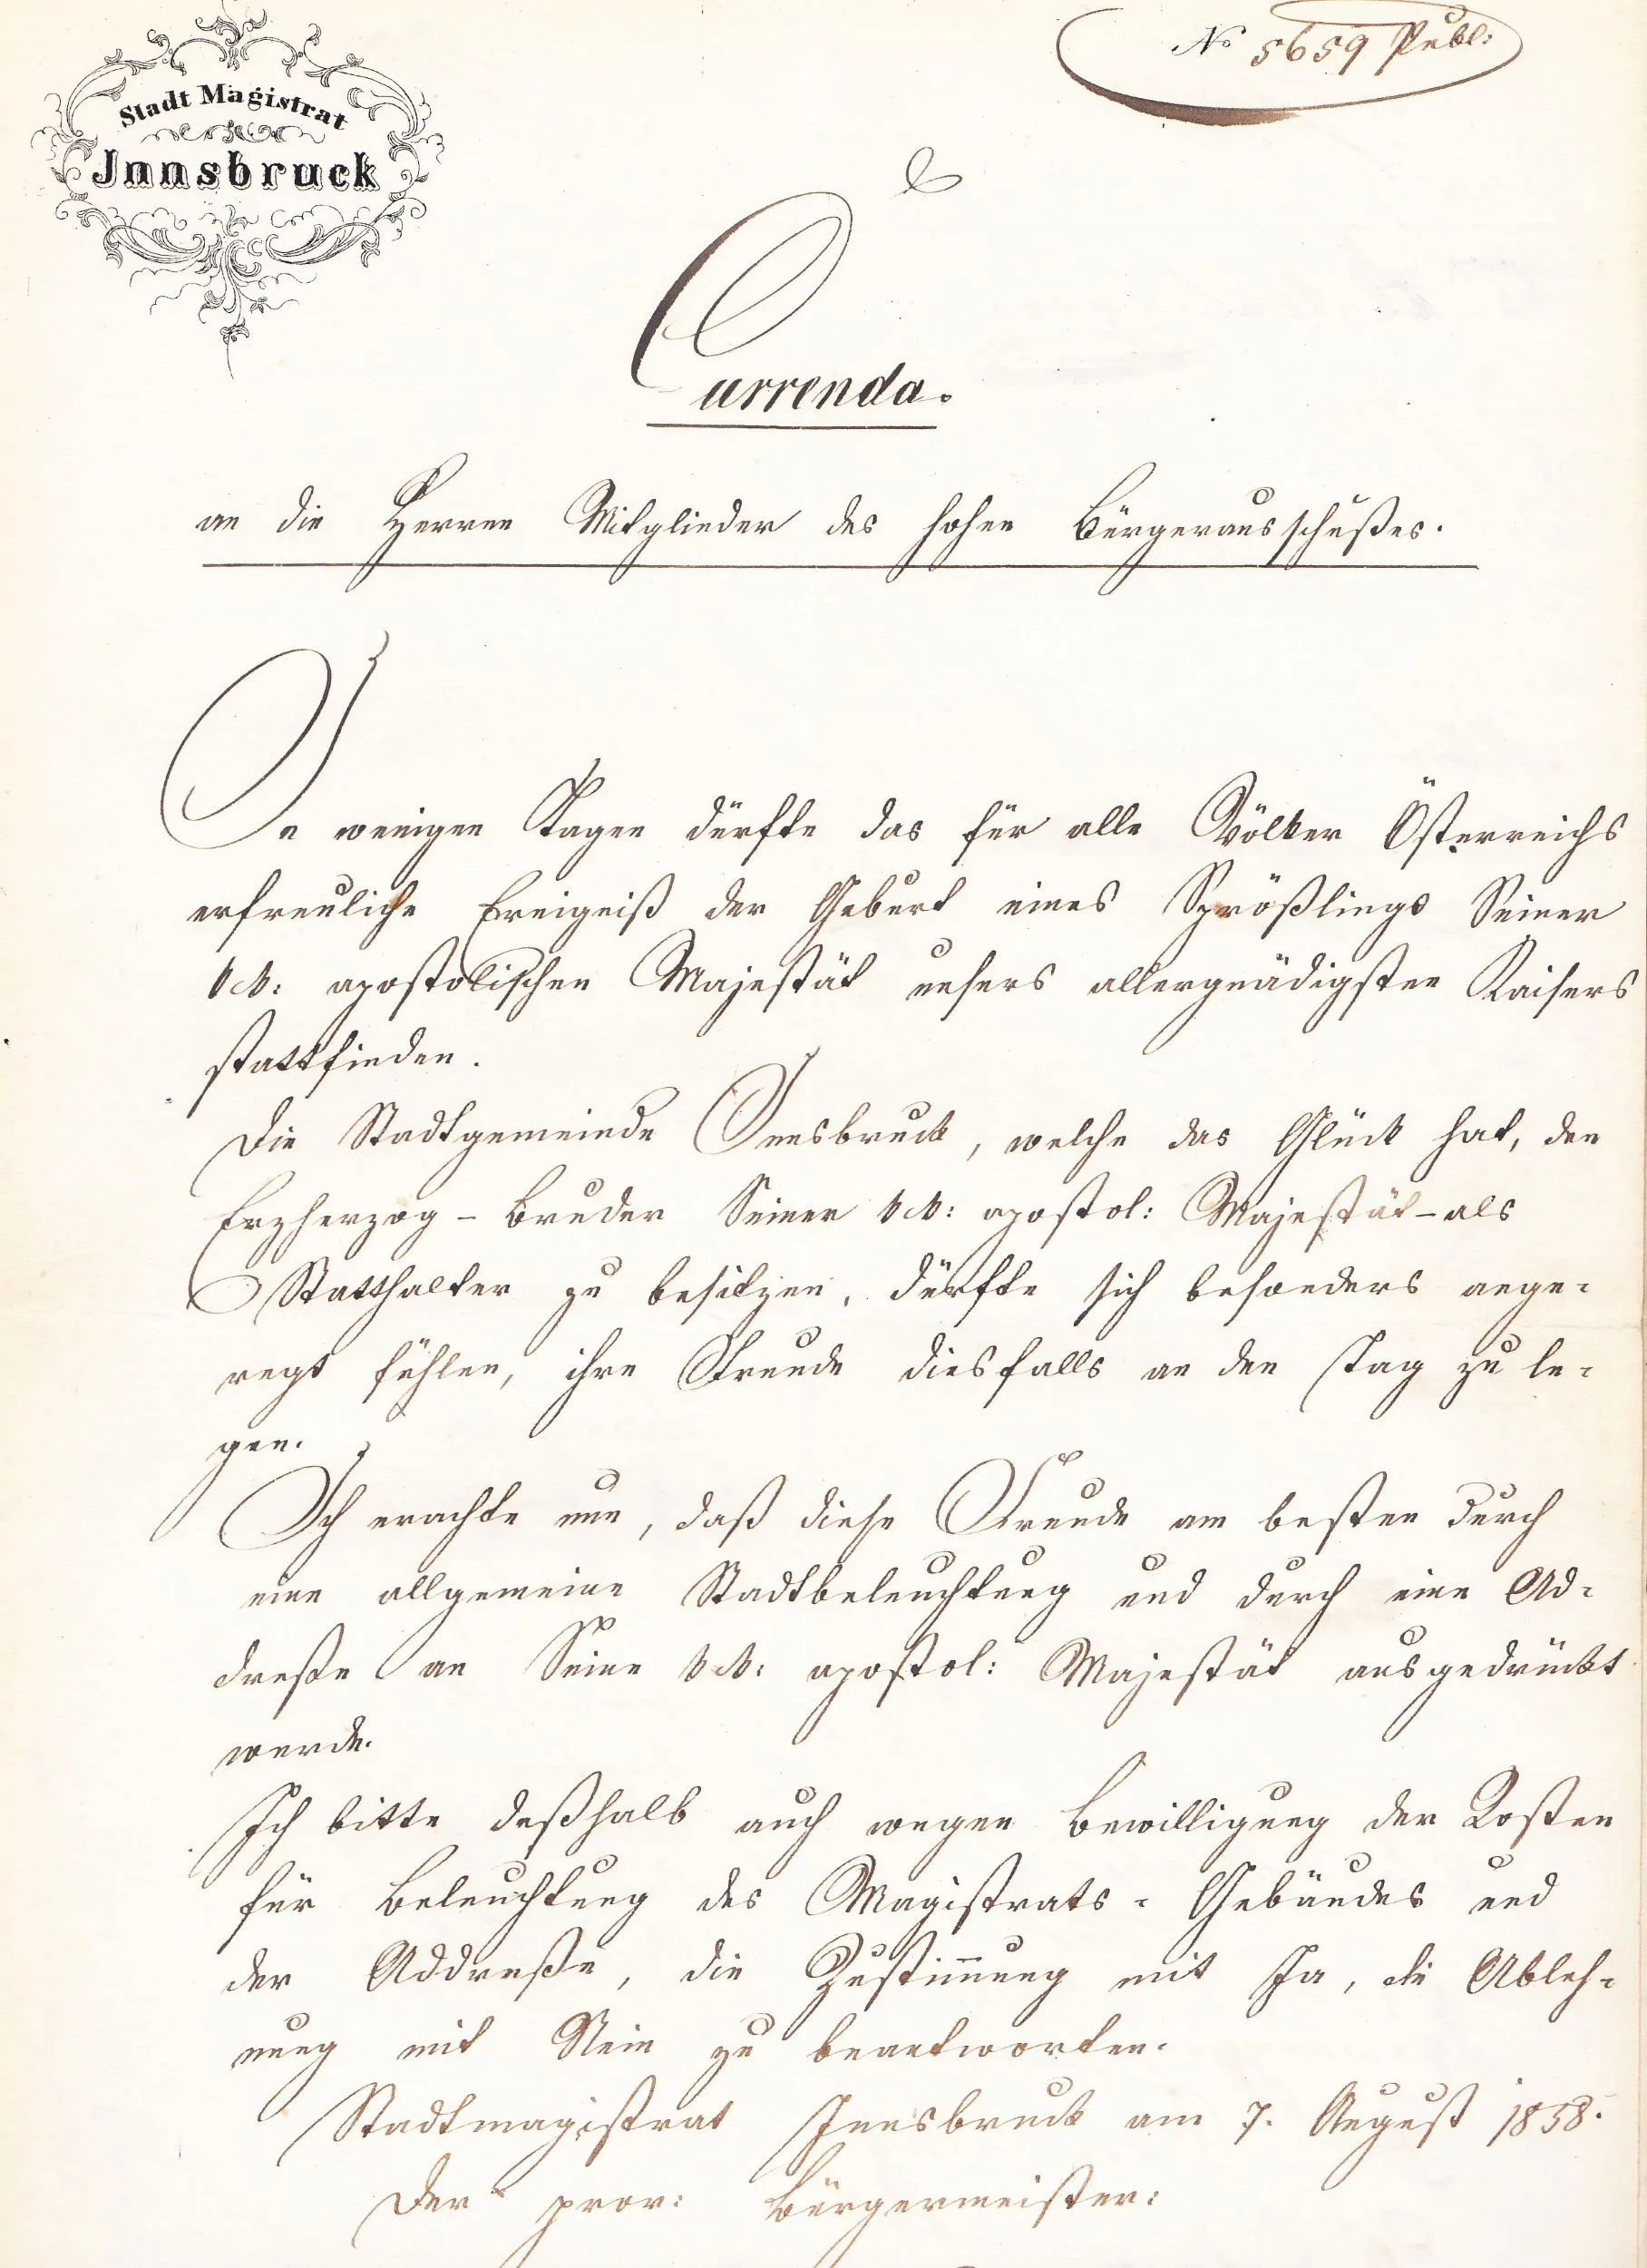 Stadt Magistrat
Innsbruck
No 5659 Publ:
Currenda.
an die Herren Mitglieder des hohen Bürgerausschußes.
In wenigen Tagen dürfte das für alle Völker Österreichs
erfreuliche Ereigniß der Geburt eines Sprößlings Seiner
kk: apostolischen Majestät unsers allergnädigsten Kaisers
stattfinden.
Die Stadtgemeinde Innsbruck, welche das Glück hat, den
Erzherzog - Bruder Seiner kk: apostol: Majestät - als
Statthalter zu besitzen, dürfte sich besonders ange-
regt fühlen, ihre Freude diesfalls an den Tag zu le-
gen.
Ich erachte nun, daß diese Freude am besten durch
eine allgemeine Stadtbeleuchtung und durch eine Ad-
dreße an Seine kk: apostol: Majestät ausgedrückt
werde.
Ich bitte deßhalb auch wegen Bewilligung der Kosten
für Beleuchtung des Magistrats - Gebäudes und
der Addreße, die Zustim̄ung mit Ja, die Ableh-
nung mit Nein zu beantworten.
Stadtmagistrat Innsbruck am 7. August 1858.
Der prov: Bürgermeister: